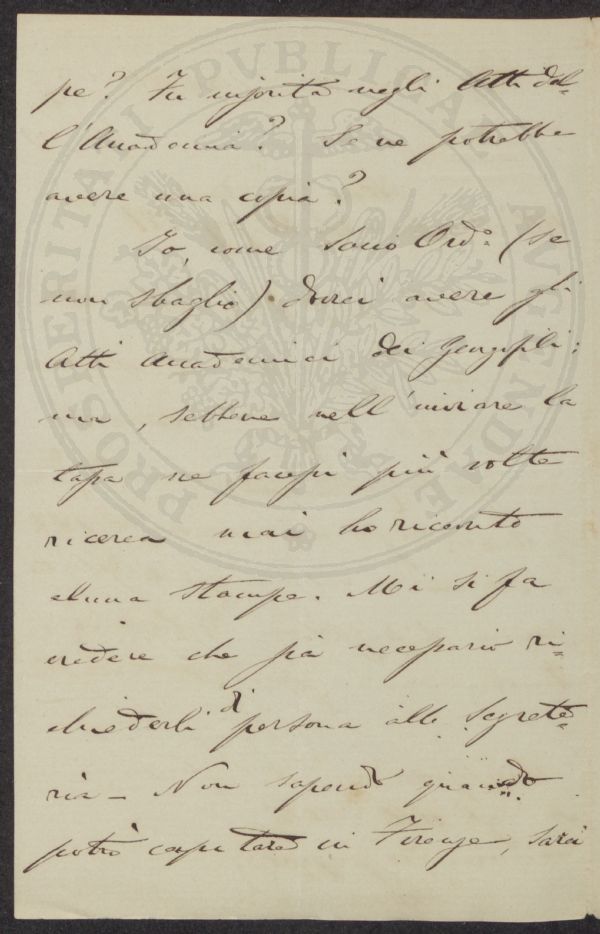 pe? Fu inserita negli Atti del-
l'Accademia? Se ne potrebbe
avere una copia?
Io, come Socio Ord.º (se
non sbaglio) dovrei avere gli
Atti Accademici dei Georgofili;
ma, sebbene nell'inviare la
tassa ne facessi più volte
ricerca mai ho ricevuto
alcuna stampe. Mi si fa
credere che sia necessario ri-
chiederli di persona alla Segrete-
ria — Non sapendo quando
potrò capitare in Firenze, sarei
PROSPERITATI PVBLICAE AVGENDAE